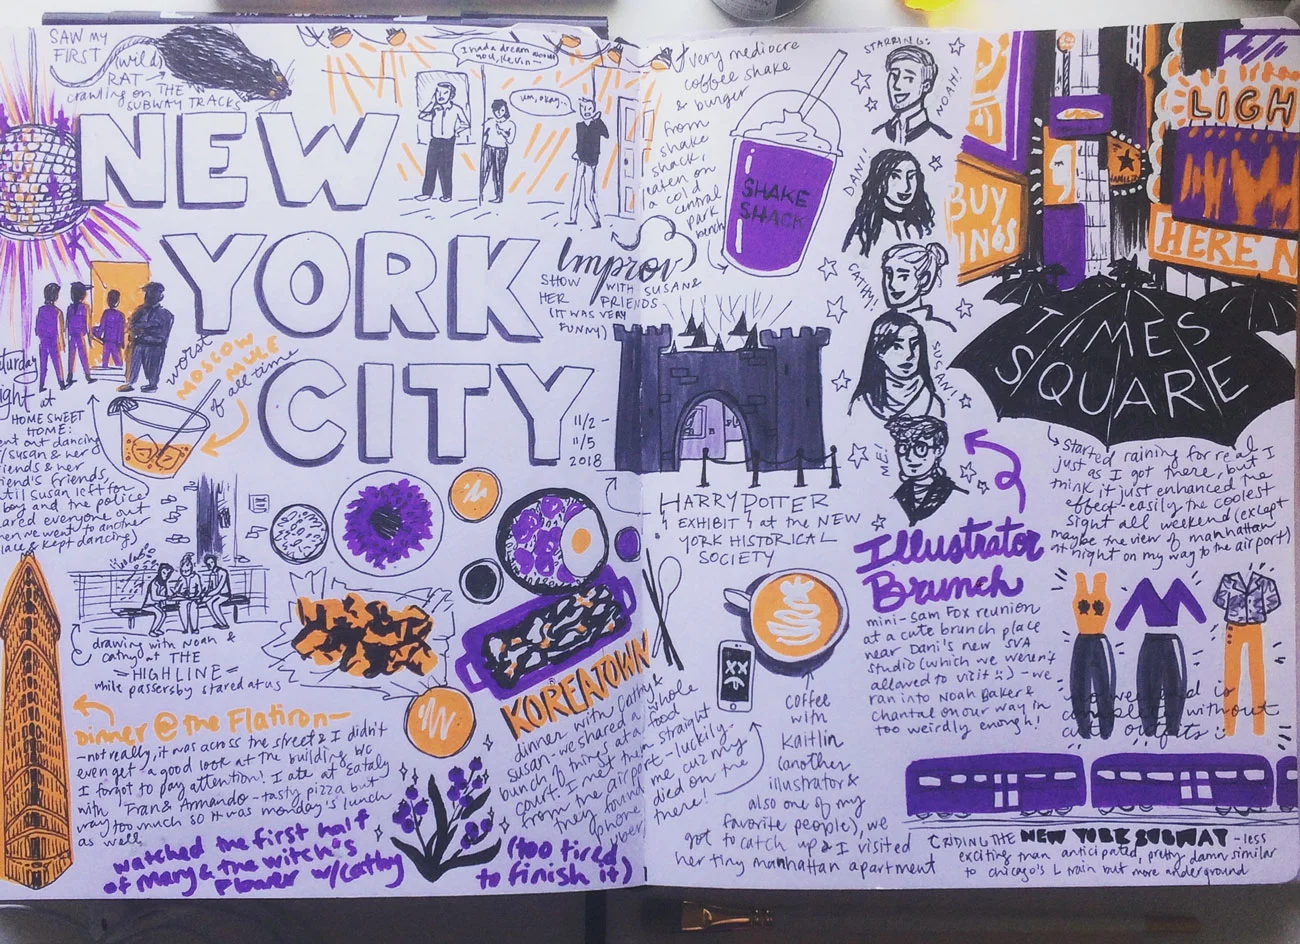 SAW MY
FIRST
(wild)
RAT →
crawling on THE
SUBWAY TRACKS
NEW
YORK
CITY
11/2 -
11/5
2018
I had a dream about
you, Kevin—
um, okay...
Improv
SHOW WITH SUSAN &
HER FRIENDS
(IT WAS VERY
FUNNY)
worst
MOSCOW
MULE
of all time
night at
HOME SWEET
HOME:
out dancing
w/susan & her
friends & her
friend's friends,
until susan left for
boy and the police
scared everyone out
then we went to another
place & kept dancing)
drawing with Noah &
Cathy at THE
=HIGHLINE=
while passersby stared at us
Dinner @ the Flatiron—
—not really, it was across the street & I didn't
even get a good look at the building bc
I forgot to pay attention! I ate at Eataly
with Fran & Armando - tasty pizza but
way too much so it was monday's lunch
as well
watched the first half
of Mary & the Witch's
Flower w/cathy
(too tired
to finish it)
KOREATOWN
dinner with Cathy &
Susan - we shared a whole
bunch of things at a food
court! I met them straight
from the airport - luckily
they found me cuz my
phone died on the
uber there!
very mediocre
coffee shake
& burger
from
shake
shack,
eaten on
a cold
central
park
bench
SHAKE
SHACK
HARRY POTTER
EXHIBIT at the NEW
YORK HISTORICAL
SOCIETY
coffee
with
Kaitlin
(another
illustrator &
also one of my
favorite people), we
got to catch up & I visited
her tiny manhattan apartment
STARRING:
NOAH!
DANI!
CATHY!
SUSAN!
ME!
Illustrator
Brunch
mini-Sam Fox reunion
at a cute brunch place
near Dani's new SVA
studio (which we weren't
allowed to visit :) - we
ran into Noah Baker &
Chantal on our way in
too weirdly enough!
BUY
INGS
HAMILTON
LIGH
HERE N
TIMES
SQUARE
started raining for real
just as I got there, but I
think it just enhanced the
effect - easily the coolest
sight all weekend (except
maybe the view of manhattan
at night on my way to the airport)
without
RIDING THE NEW YORK SUBWAY - less
exciting than anticipated, pretty damn similar
to chicago's L train but more underground